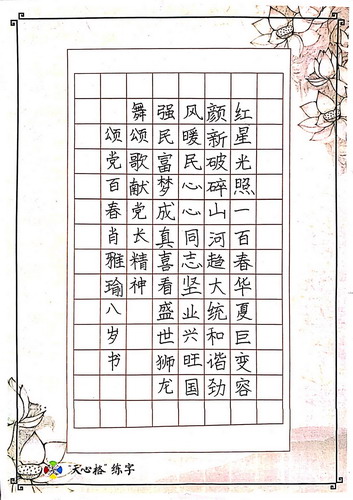 红星光照一百春华夏巨变容
颜新破碎山河趋大统和谐劲
风暖民心心同志坚业兴旺国
强民富梦成真喜看盛世狮龙
舞颂歌献党长精神
颂党百春肖雅瑜八岁书
"天心格"练字